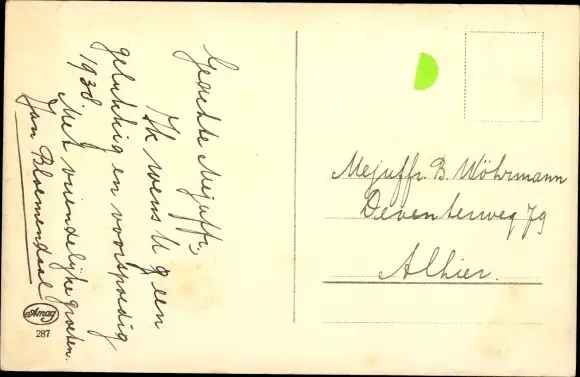 Geachte Mejuffr.,
Ik wens U een
gelukkig en voorspoedig
1938.
Met vriendelijke groeten.
Jan Bloemendaal
Amag
287
Mejuffr. B. Wöhrmann
Deventerweg 79
Alhier.